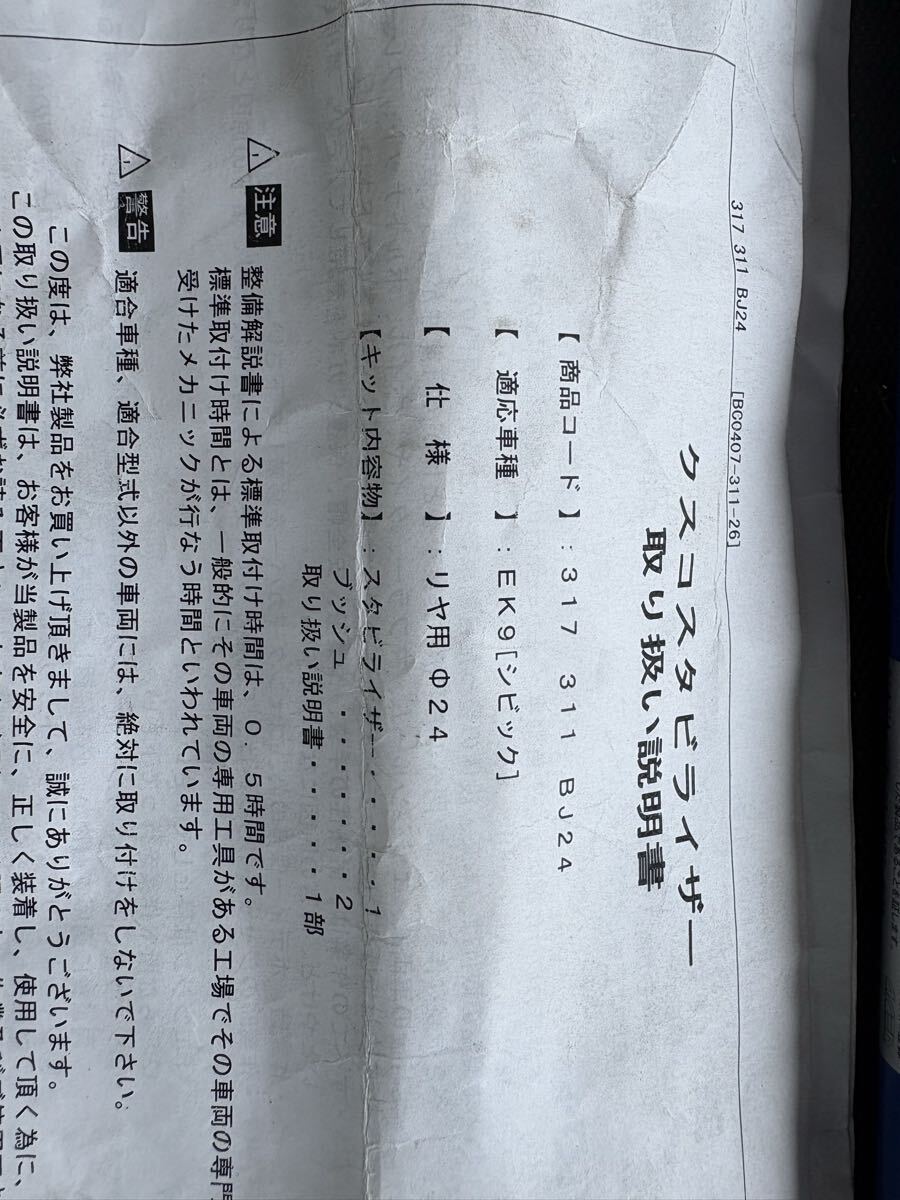 317 311 BJ24 [BC0407-311-26]
クスコスタビライザー
取り扱い説明書
【 商品コード 】: 317 311 BJ24
【 適応車種 】: EK9[シビック]
【 仕 様 】: リヤ用 Φ24
【キット内容物】: スタビライザー・・・・・1
ブッシュ ・・・・・・・2
取り扱い説明書・・・・・1部
注意 整備解説書による標準取付け時間は、0.5時間です。
標準取付け時間とは、一般的にその車両の専用工具がある工場でその車両の専門
受けたメカニックが行なう時間といわれています。
警告 適合車種、適合型式以外の車両には、絶対に取り付けをしないで下さい。
この度は、弊社製品をお買い上げ頂きまして、誠にありがとうございます。
この取り扱い説明書は、お客様が当製品を安全に、正しく装着し、使用して頂く為に、